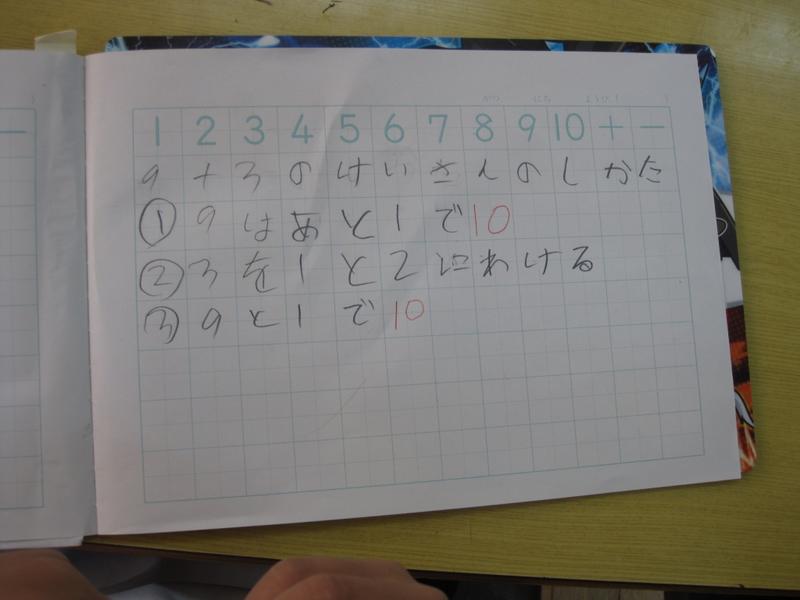 1 2 3 4 5 6 7 8 9 10 + −
9+3のけいさんのしかた
①9はあと1で10
②3を1と2にわける
③9と1で10